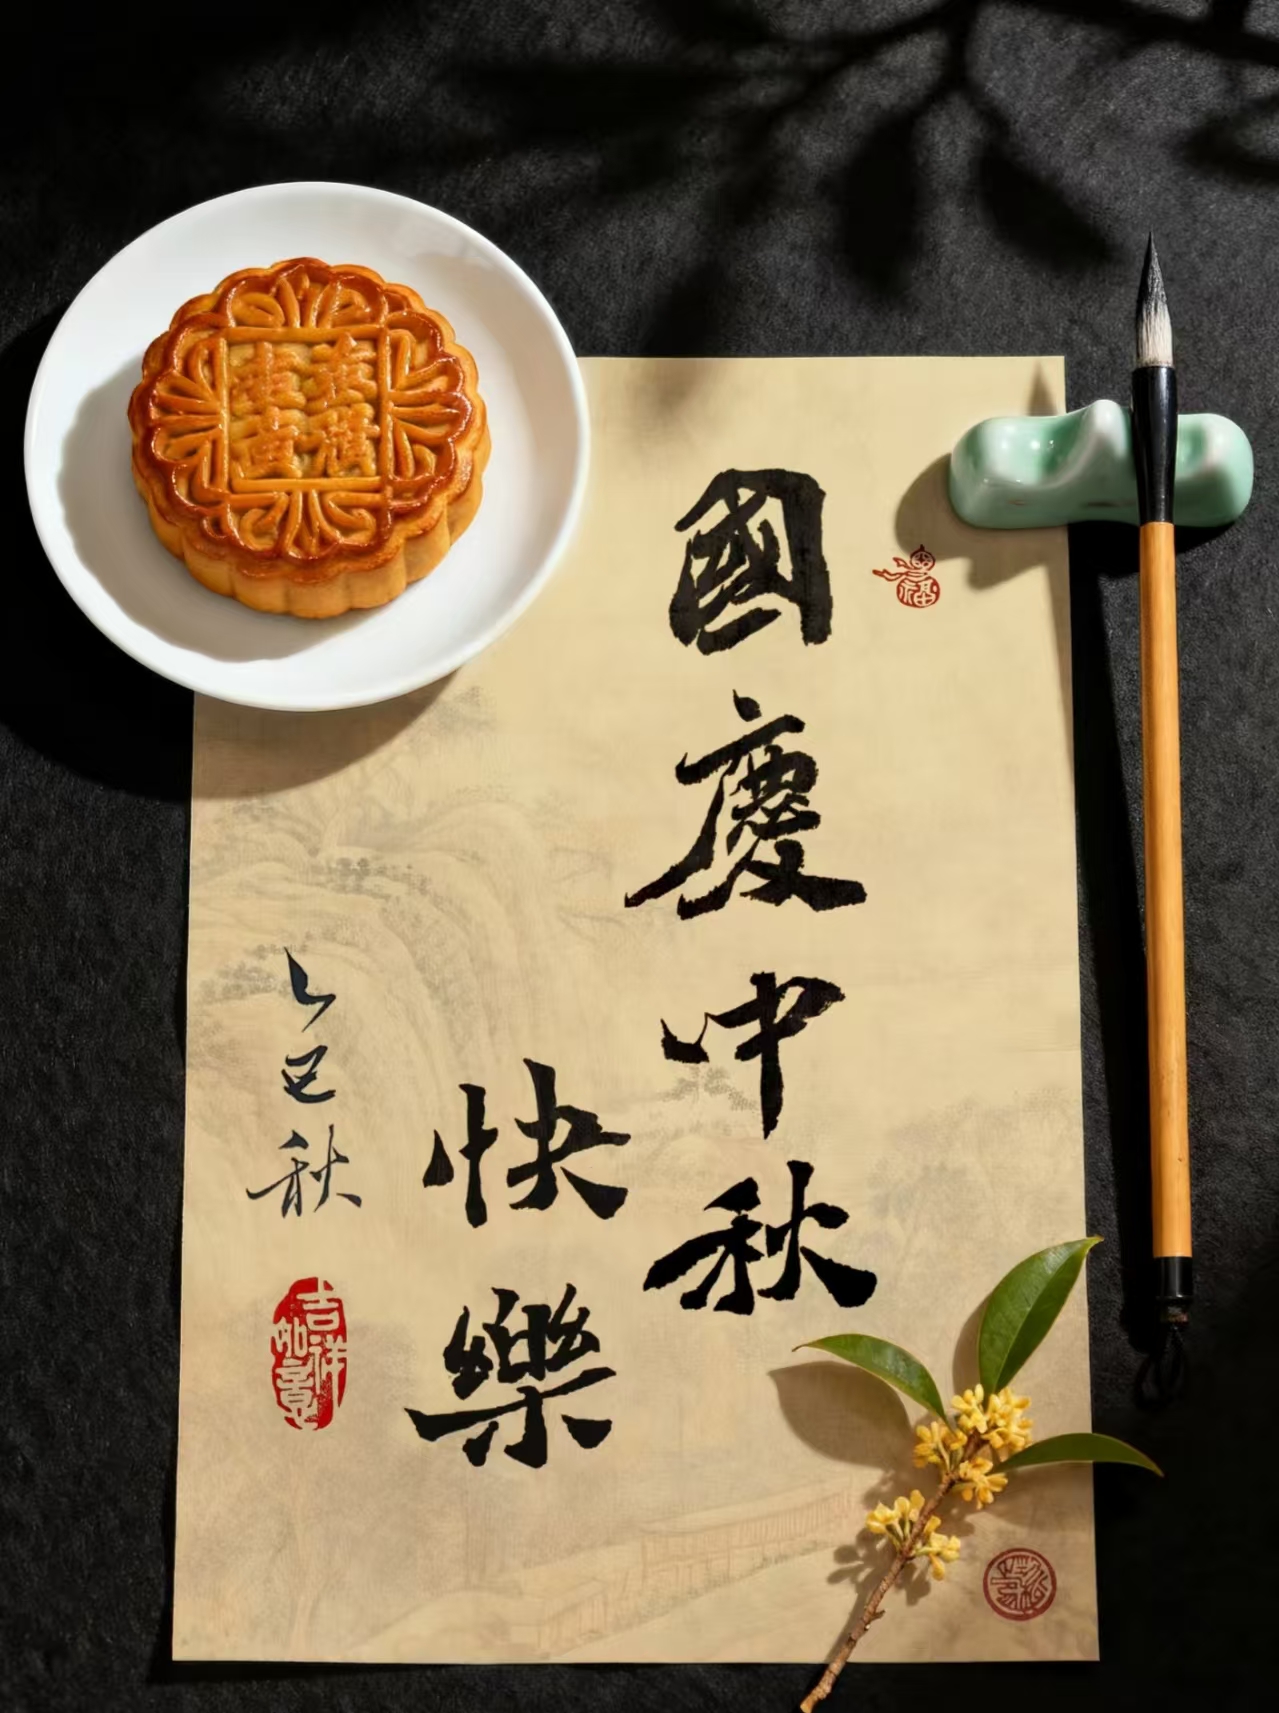 國慶中秋
快樂
乙巳秋
吉祥
如意
福